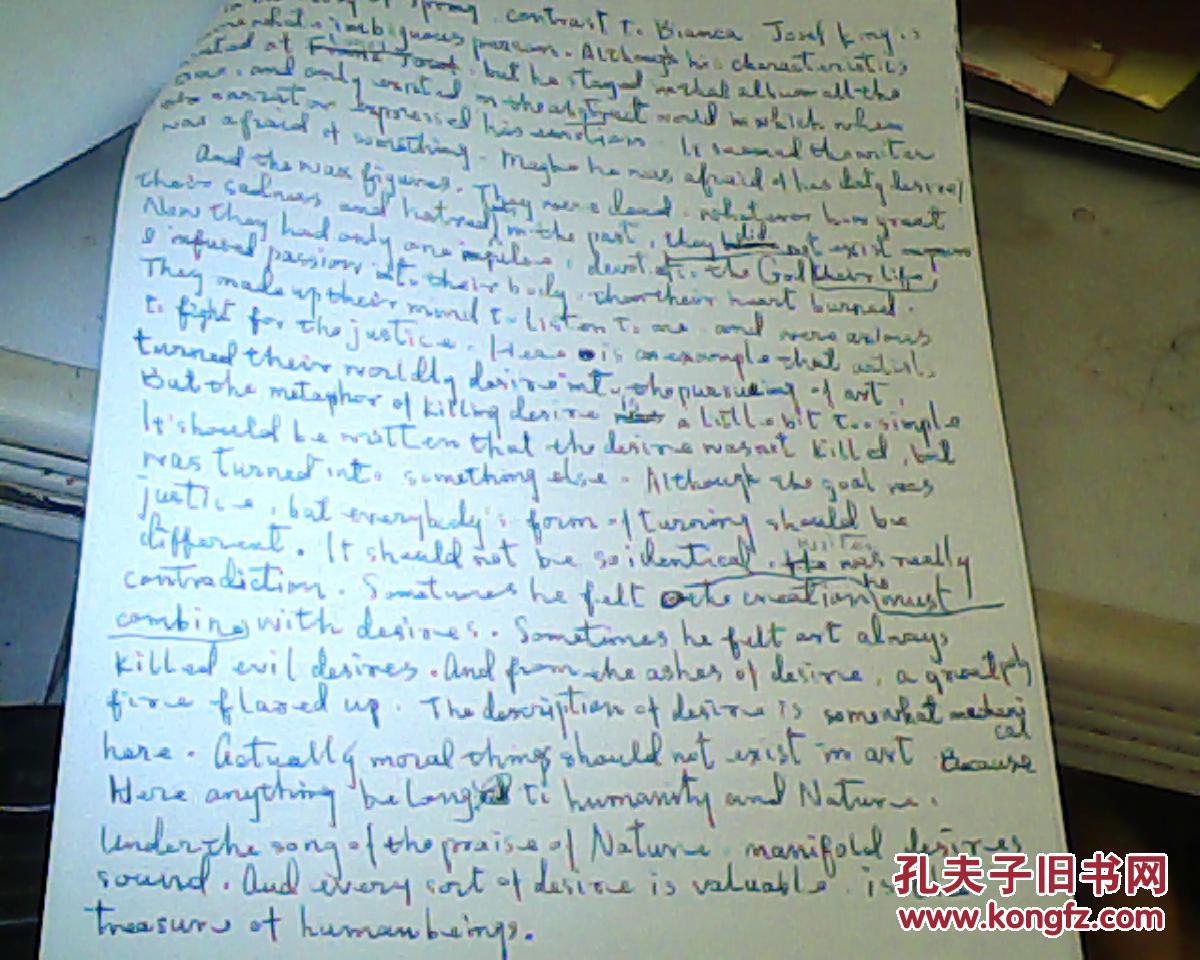 spring. contrast to Bianca Josef king is
somewhat imbiguous person. Although his characteristics
at but he stayed in that album all the
and only existed in the abstract world in which when
narrator expressed his emotion. It seemed the writer
was afraid of something. Maybe he was afraid of his duty desires
And the wax figures. They were dead. whatever how great
their sadness and hatred in the past, they did not exist anymore
Now they had only one impulse, devot to the God their life,
I infused passion into their body. then their heart burned.
They made up their mind to listen to me and were
to fight for the justice. Here is an example that artist
turned their worldly desire into the pursueing of art.
But the metaphor of killing desire is a little bit too simple
It should be written that the desire was not killed, but
was turned into something else. Although the goal was
justice, but everybody's form of turning should be
different. It should not be so identical. writer was really
contradiction. Sometimes he felt the creation must
combine with desires. Sometimes he felt art always
killed evil desires. And from the ashes of desire, a great holy
fire flared up. The description of desire is somewhat mechanical
here. Actually moral things should not exist in art Because
Here anything belonged to humanity and Nature.
Under the song of the praise of Nature manifold desires
sound. And every sort of desire is valuable. is the
treasure of human beings.
孔夫子旧书网
www.kongfz.com